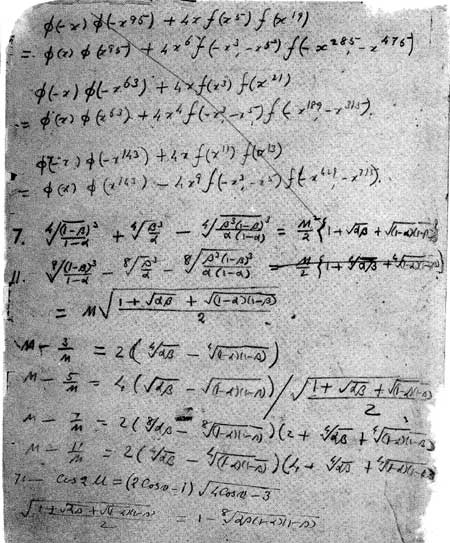 φ(-x) φ(-x^95) + 4x f(x^5) f(x^19)
= φ(x) φ(x^95) + 4x^6 f(-x^3, -x^5) f(-x^285, -x^475)
φ(-x) φ(-x^63) + 4x f(x^3) f(x^21)
= φ(x) φ(x^63) + 4x^4 f(-x^3, -x^5) f(-x^189, -x^315).
φ(-x) φ(-x^143) + 4x f(x^11) f(x^13)
= φ(x) φ(x^143) - 4x^9 f(-x^3, -x^5)
7. ∜((1-β)^3/(1-α)) + ∜(β^3/α) - ∜(β^3(1-β)^3/(α(1-α))) = m^2/2 {1 + √(αβ) + √((1-α)(1-β))}
11. ⁸√((1-β)^3/(1-α)) - ⁸√(β^3/α) - ⁸√(β^3(1-β)^3/(α(1-α))) = m/2 {1 + ∜(αβ) + ∜((1-α)(1-β))}
= m √((1 + √(αβ) + √((1-α)(1-β)))/2)
m - 3/m = 2(∜(αβ) - ∜((1-α)(1-β)))
m - 5/m = 4(√(αβ) - √((1-α)(1-β))) / √((1 + √(αβ) + √((1-α)(1-β)))/2)
m - 7/m = 2(⁸√(αβ) - ⁸√((1-α)(1-β)))(2 + ∜(αβ) + ∜((1-α)(1-β))
m - 11/m = 2(∜(αβ) - ∜((1-α)(1-β)))(4 + ∜(αβ) + ∜((1-α)(1-β)
cos 2u = (2 cos v - 1) √(4 cos v - 3)
√((1 + √(αβ) + √((1-α)(1-β)))/2) = 1 - ⁸√(αβ(1-α)(1-β))